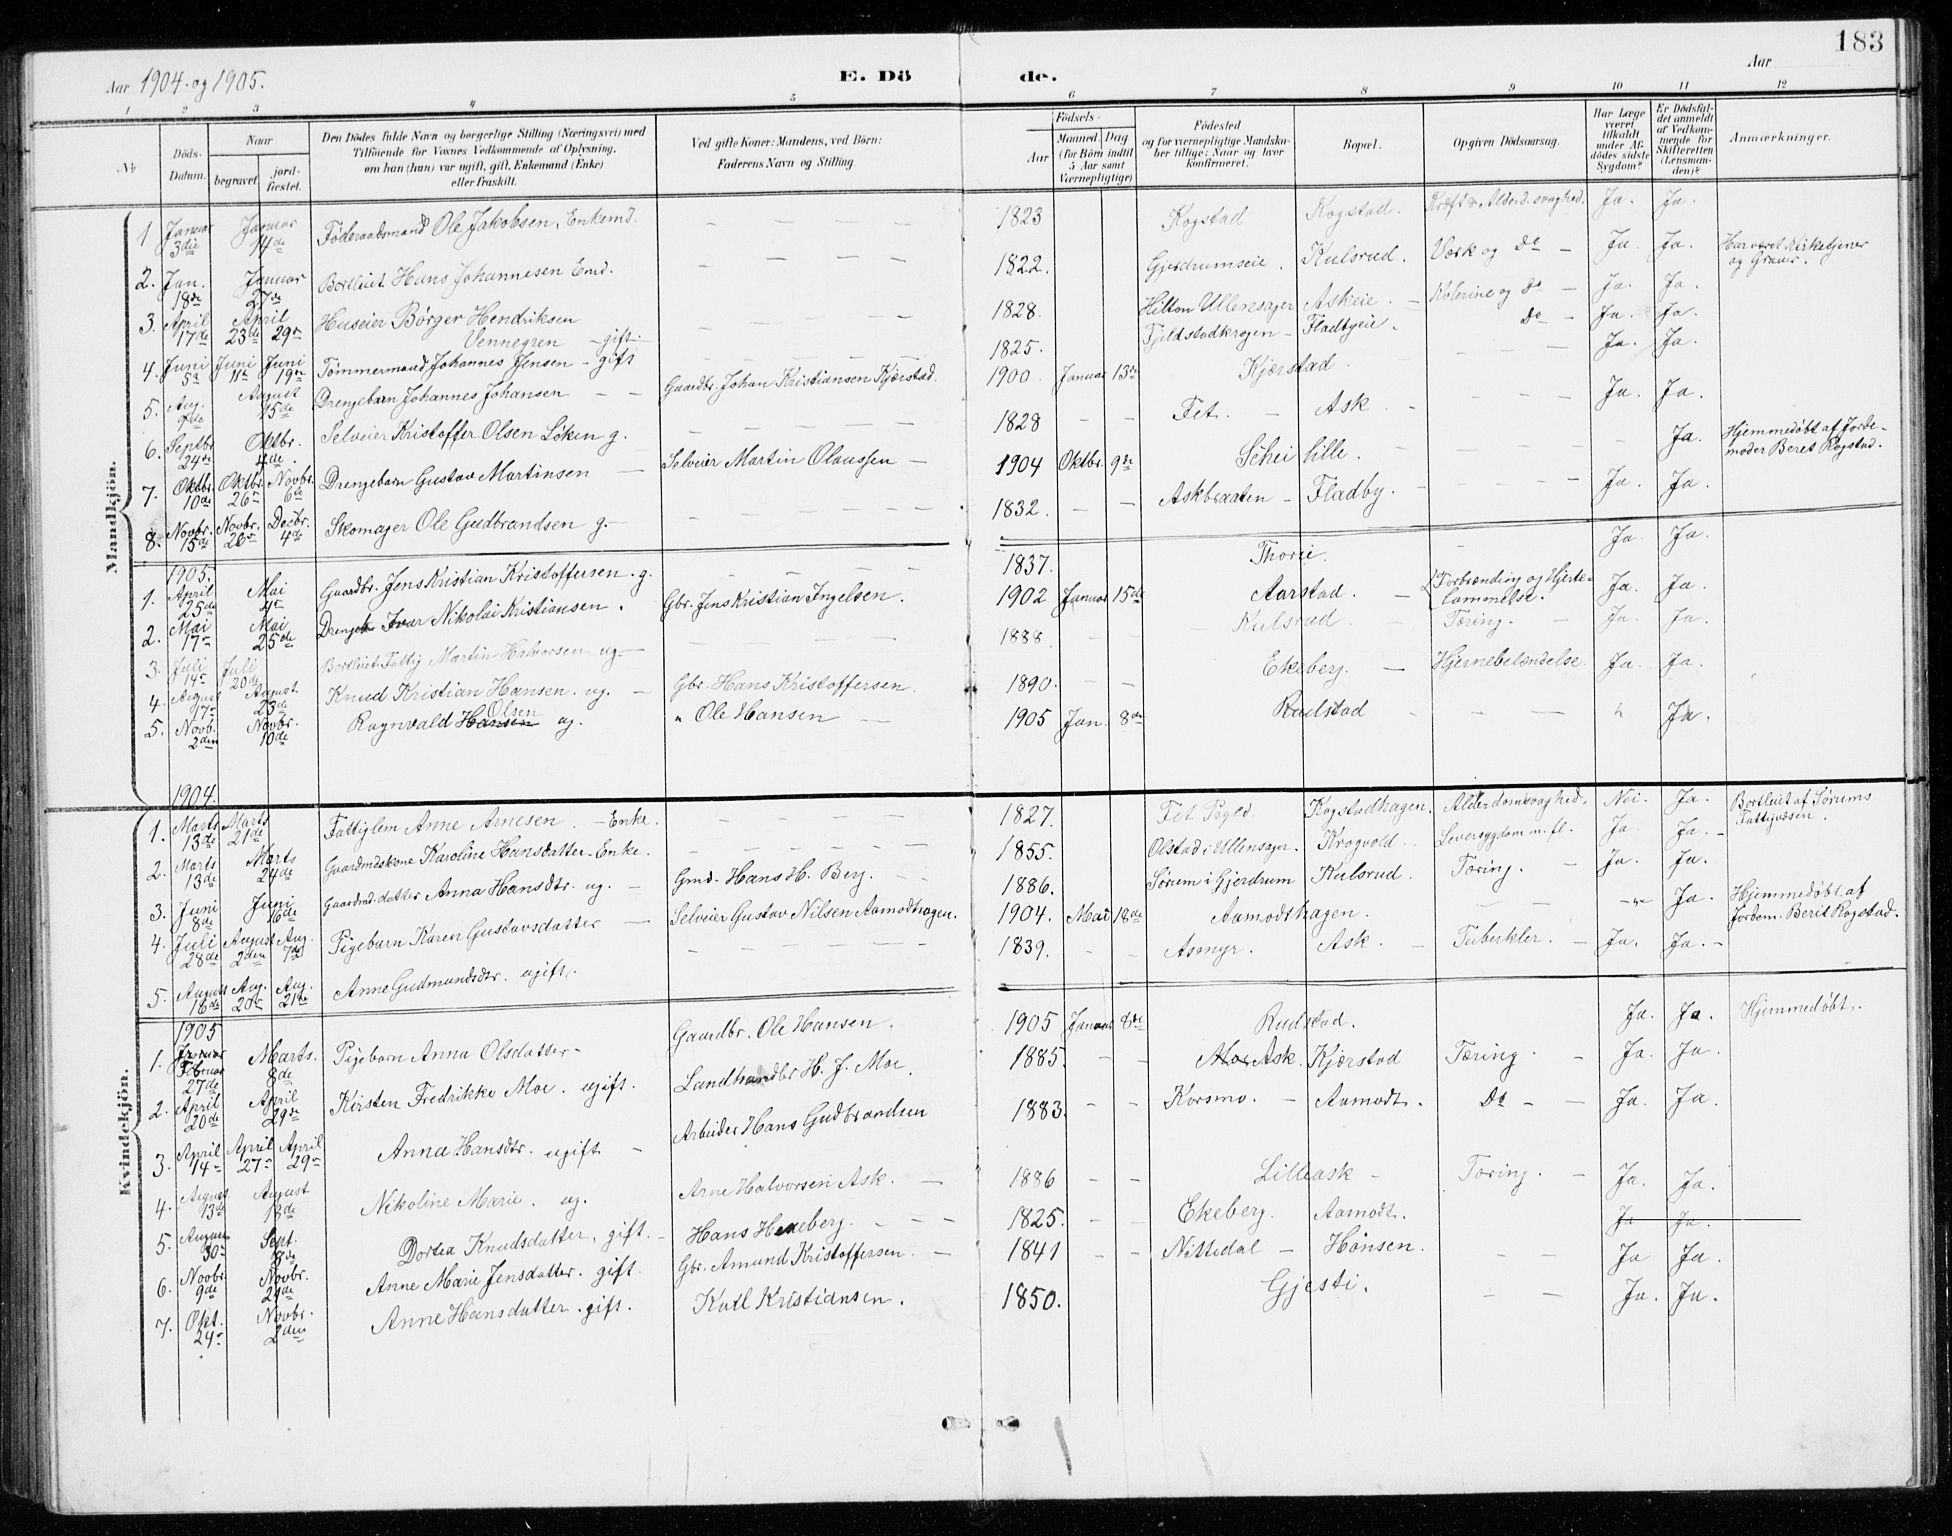 183
Aar 1904. og 1905.
E. Döde.
Aar
1 2 3 4 5 6 7 8 9 10 11 12
No
Döds-Datum.
Naar
begravet.
jordfæstet.
Den Dödes fulde Navn og borgerlige Stilling (Næringsvei) med Tilföiende for Voxnes Vedkommende af Oplysning, om han (hun) var ugift, gift, Enkemand (Enke) eller fraskilt.
Ved gifte Koner: Mandens, ved Börn: Faderens Navn og Stilling.
Födsels-
Aar
Maaned. Dag
(for Börn indtil 5 Aar samt Værnepligtige)
Födested og for værnepligtige Mandskaber tillige: Naar og hvor konfirmeret.
Bopæl.
Opgiven Dödsaarsag.
Har Læge været tilkaldt under Afdödes sidste Sygdom?
Er Dödsfaldet anmeldt af Vedkommende for Skifteretten (Lensmanden)?
Anmærkninger.
Mandkjön.
1 Januar 3die Januar 14de Føderaadsmand Ole Jakobsen, Enkemd. — 1823 Kogstad Kogstad. Kræft & Alderd. svaghed. Ja. Ja.
2. Jan. 18de Januar 27de Bortleiet Hans Johannesen Emd. — 1822. Gjerdrumseie. Kulsrud. Værk og Do — Ja. Ja. Har været Kirketjener og Graver.
3. April 17de April 23de 29n Huseier Børger Hendriksen Vennegren — gift — 1828. Hilton Ullensager Askeie. — Kolerine og Do — Ja. Ja.
4. Juni 5n Juni 11n Juni 19n Tømmermand Johannes Jensen — gift — 1825. Fjeldstadkrogen — Fladbyeie. Do — Ja. Ja.
5. Aug. Aug. 15de Drengebarn Johannes Johansen — Gaardbr. Johan Kristiansen Kjærstad. 1900 Januar 13de Kjærstad. — Ja. Ja.
6. Septbr. 24de Oktbr. 4de. Selveier Kristoffer Olsen Løken g. — 1828 Fet. — Ask. — Ja. Ja.
7. Oktbr. 10de Oktbr. 26n Novbr. 6te Drengebarn Gustav Martinsen — Selveier Martin Olaussen — 1904 Oktbr. 9de lille. — Ja. Hjemmedøbt af Jordemoder Beret Rogstad.
8. Novbr. 15de Novbr. 26n Decbr. 4de Skomager Ole Gudbrandsen g. — 1832. — Askbraaten — Fladby. — Ja. Ja.
1905.
1. April 25de Mai 4n Gaardbr. Jens Kristian Kristoffersen. g. — 1837. Thorei. — Ja. Ja.
2. Mai 17n Mai 25de Drengeb. Ivar Nikolai Kristiansen. Gbr. Jens Kristian Ingelsen. 1902 Januar 15de Aarstad. — Forbrænding og Hjertelammelse. Ja. Ja.
3. Juli 14n Juli 20de Bortleiet Fattig Martin Halvorsen ug. — 1888 — Kulsrud — Tæring. — Ja. Ja.
4. August 17n August. 23de Knud Kristian Hansen. ug. — Gbr. Hans Kristoffersen. 1890. — Ekeberg. — Hjernebetændelse. Ja. Ja.
5. Novb. 2den Novbr. 10de Ragnvald Hansen Olsen ug. " Ole Hansen — 1905 Jan. 8de Rudstad — " Ja.
Kvindekjön.
1904.
1. Marts 13de Marts 21de Fattiglem Anne Arnesen. — Enke. — 1827. Fet Prgld. Kogstadhagen. Alderdomssvaghed. Nei. Ja. Bortleiet af Sørums Fattigvæsen.
2. Marts 13de Marts 24de Gaardmdskone Karoline Hansdatter — Enke. — 1855. Olstad i Ullensagr. Krogvold. Leversygdom m. fl. Ja. Ja. —
3. Juni 8de Juni 16de Gaardmd. datter Anna Hansdtr. ug. — Gmd. Hans H. Berg. — 1886. Sørum i Gjerdrum Kulsrud. Tæring. — Ja. Ja.
4. Juli 28de August 2den Aug. 7de Pigebarn Karen Gustavsdatter — Selveier Gustav Nilsen Aamodthagen. 1904. Mai 18de Aamodthagen. — Ja. Hjemmedøbt af Jordem. Berit Rogstad.
5. August 16de Aug. 20de Aug. 21de Anne Gudmundsdtr. ugift. — 1839. — Asmyr. Ask. — Tuberkler. — Ja. Ja. —
1905
1. Januar Februar 27de Marts. 8de Pigebarn Anna Olsdatter — Gaardbr. Ole Hansen. 1905 Januar 8de Rudstad. Ja. Ja. Hjemmedøbt.
2. April 20de April 29de Kirsten Fredrikke Moe. ugift. Landhandler H. J. Moe. 1885. — Moe, Ask. Kjærstad Tæring. — Ja. Ja.
3. April 14n April 27n April 29n Anna Hansdtr. ugift — Arbeider Hans Gudbrandsen 1883. — Korsmo. — Aamodt. Do — Ja. Ja.
4. August 13de August 18de Nikoline Marie. ug. Arne Halvorsen Ask. — 1886 — Lilleask — Tæring. — Ja. Ja.
5. August 30n Sept. 8de Dortea Knudsdatter. gift. — Hans — 1825. — Ekeberg. Aamodt. Ja Ja.
6. Novbr. 9de Novbr. 20de Anne Marie Jensdatter. gift. Gbr. Amund Kristoffersen. — 1841 — Nittedal — Hønsen. — Ja Ja.
7. Okt. 24n Novbr. 2den Anne Hansdatter. gift. Karl Kristiansen. 1850. Gjesti. — Ja. Ja.